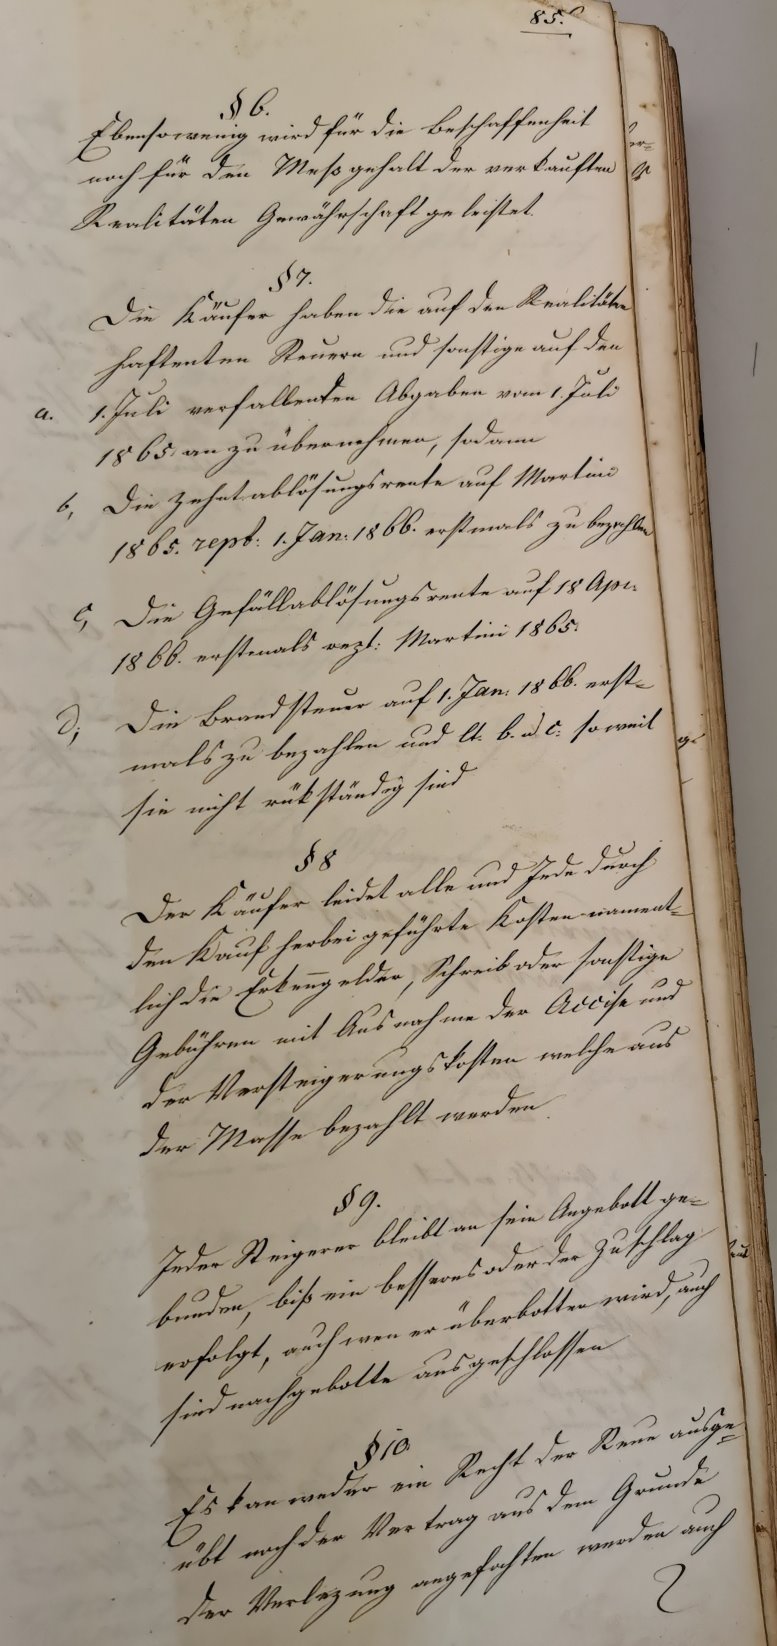 85.
§ 6.
Ebensowenig wird für die Beschaffenheit
noch für den Meßgehalt der verkauften
Realitäten Gewährschaft geleistet.
§ 7.
Die Käufer haben die auf den Realitäten
haftenten Steuern und sonstige auf den
a. 1. Juli verfallenden Abgaben vom 1. Juli
1865. an zu übernehmen, sodann
b, Die Zehntablösungsrente auf Martini
1865. resp: 1. Jan: 1866. erstmals zu bezahlen
c, Die Gefällablösungsrente auf 18 Apr.
1866. erstmals rezt: Martini 1865.
d, Die Brandsteuer auf 1. Jan: 1866. erst=
mals zu bezahlen und lt. b. u c. soweit
sie nicht rükständig sind
§ 8
Der Käufer leidet alle und Jede durch
den Kauf herbeigeführte Kosten nament=
lich die Erkenngelder, Schreib oder sonstige
Gebühren mit Ausnahme der Accise und
der Versteigerungskosten welche aus
der Masse bezahlt werden.
§ 9.
Jeder Steigerer bleibt an sein Angebott ge=
bunden, biß ein besseres oder der Zuschlag
erfolgt, auch wen er überbotten wird, auch
sind nachgebotte ausgeschlossen
§ 10
Es kan weder ein Recht der Reue ausge=
übt noch der Vertrag aus dem Grunde
der Verlezung angefochten werden auch